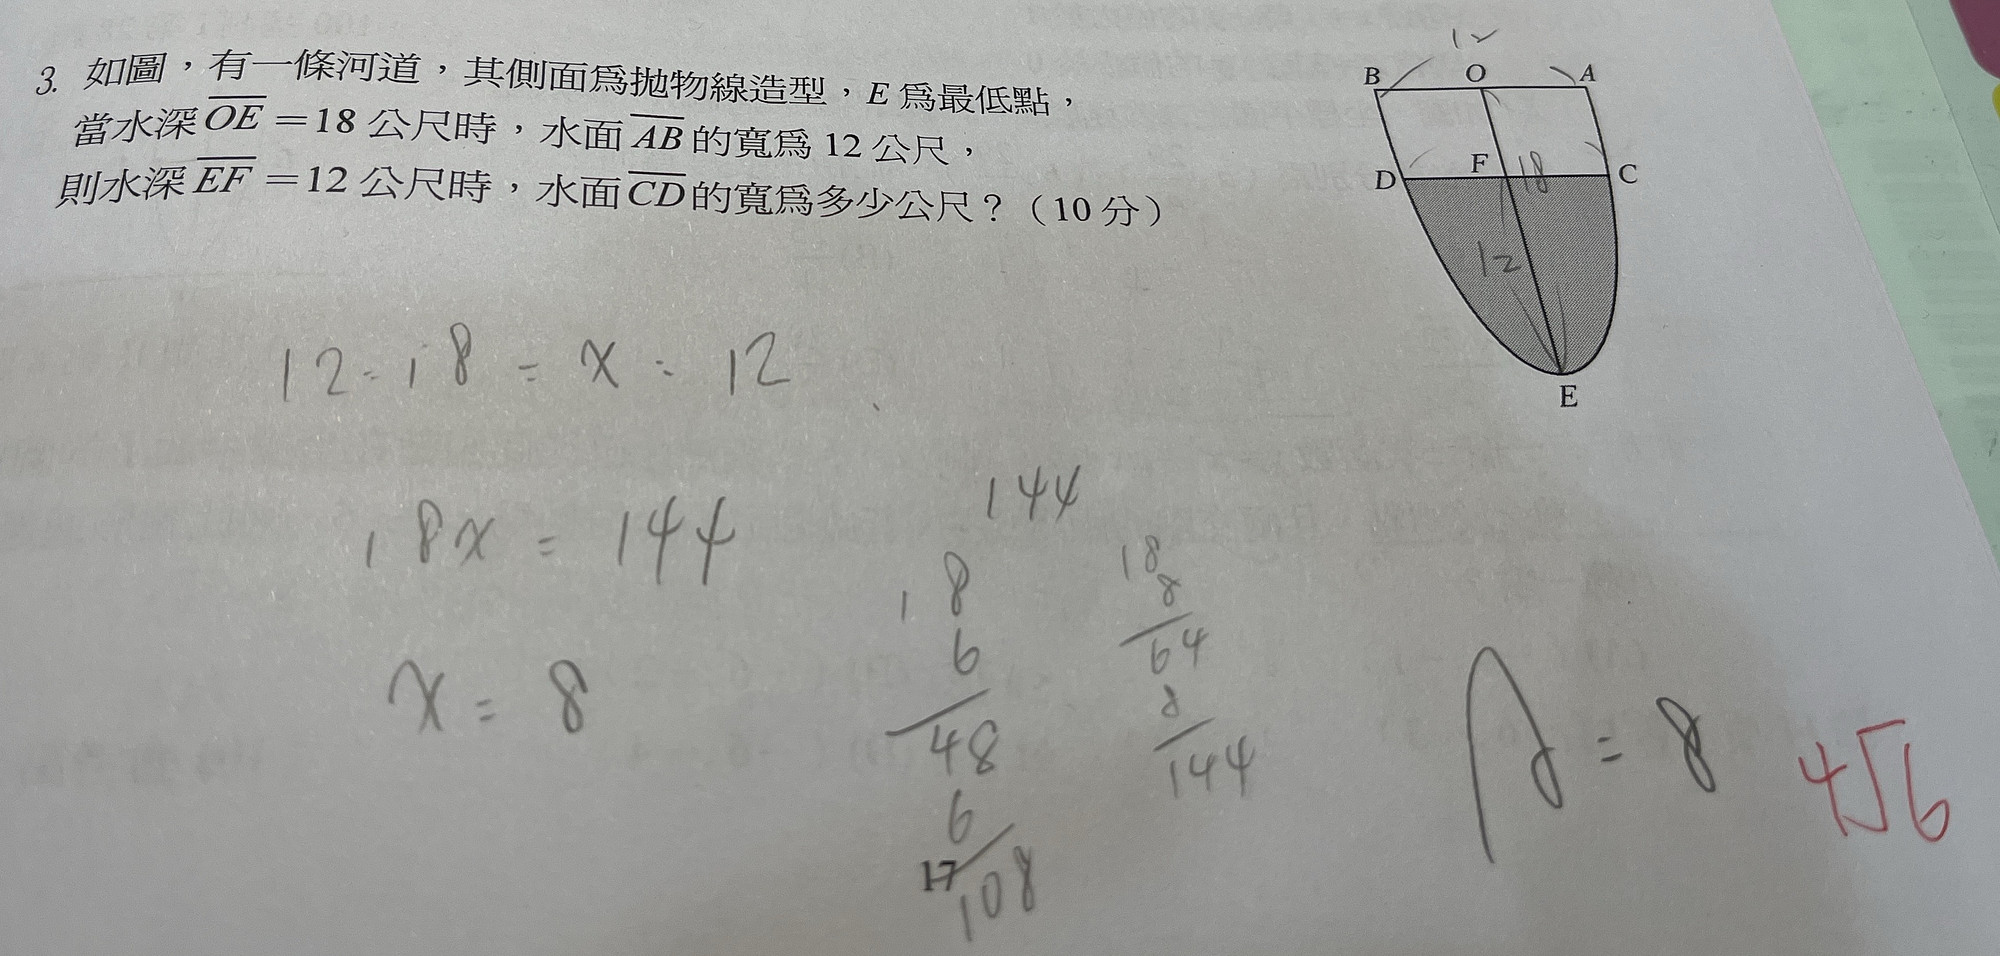 3. 如圖，有一條河道，其側面為拋物線造型，E 為最低點，
當水深 OE =18 公尺時，水面 AB 的寬為 12 公尺，
則水深 EF =12 公尺時，水面 CD 的寬為多少公尺？（10 分）
12
B O A
D F 18 C
12
E
12:18 = x:12
18x = 144
x = 8
144
18
6
48
6
108
18
8
64
8
144
A = 8
4√6
17